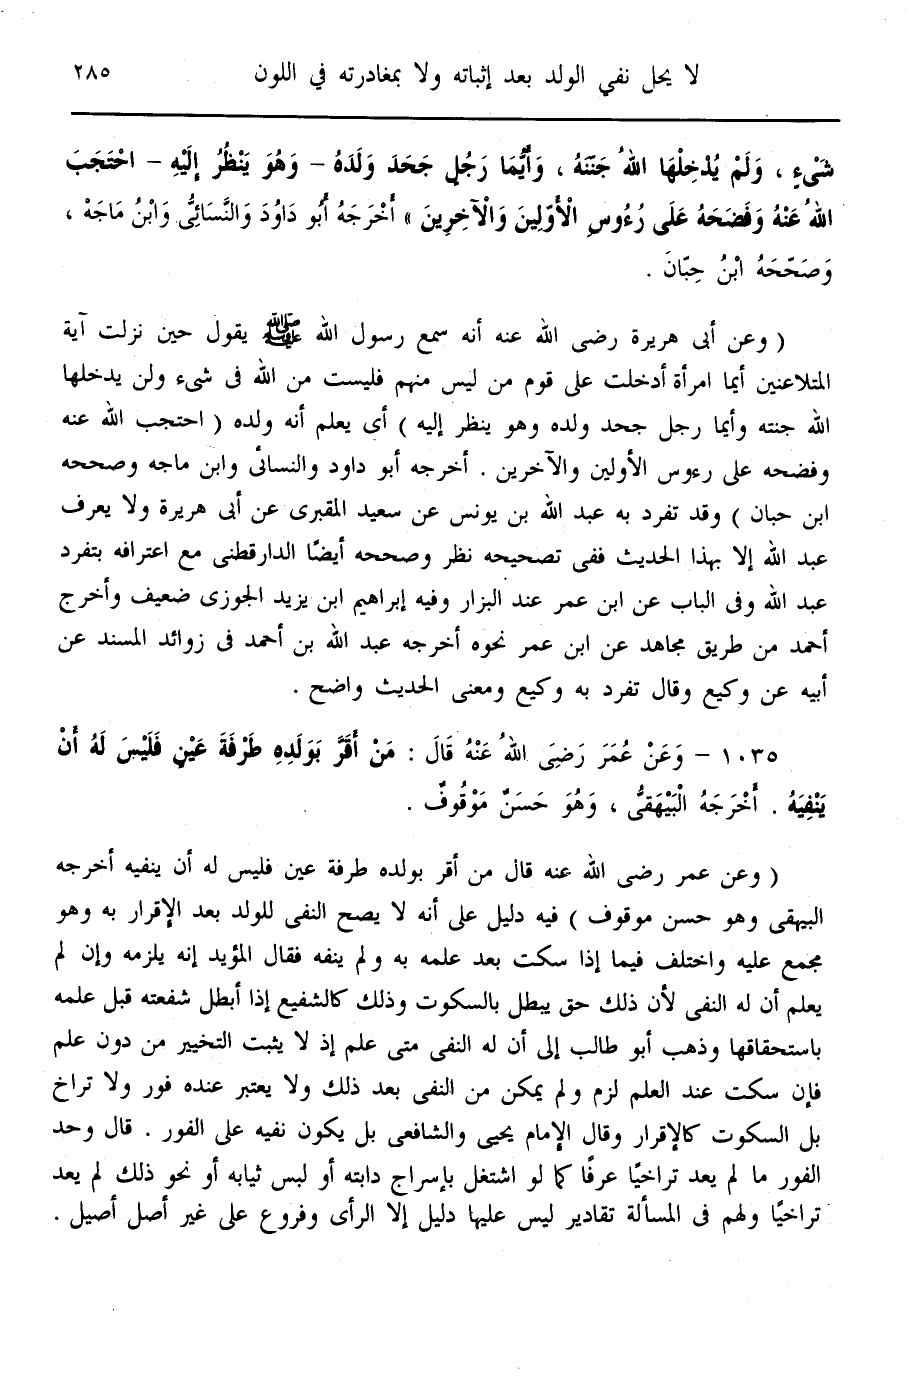 لا يحل نفي الولد بعد إثباته ولا بمغادرته في اللون ٢٨٥
شَىْءٍ ، وَلَمْ يُدْخِلْهَا اللهُ جَنَّتَهُ ، وَأَيُّمَا رَجُلٍ جَحَدَ وَلَدَهُ – وَهُوَ يَنْظُرُ إِلَيْهِ – احْتَجَبَ
اللهُ عَنْهُ وَفَضَحَهُ عَلَى رُءُوسِ الْأَوَّلِينَ وَالْآخِرِينَ » أَخْرَجَهُ أَبُو دَاوُدَ وَالنَّسَائِىُّ وَابْنُ مَاجَهْ ،
وَصَحَّحَهُ ابْنُ حِبَّانَ .
( وعن أبى هريرة رضى الله عنه أنه سمع رسول الله ﷺ يقول حين نزلت آية
المتلاعنين أيما امرأة أدخلت على قوم من ليس منهم فليست من الله فى شىء ولن يدخلها
الله جنته وأيما رجل جحد ولده وهو ينظر إليه ) أى يعلم أنه ولده ( احتجب الله عنه
وفضحه على رءوس الأولين والآخرين . أخرجه أبو داود والنسائى وابن ماجه وصححه
ابن حبان ) وقد تفرد به عبد الله بن يونس عن سعيد المقبرى عن أبى هريرة ولا يعرف
عبد الله إلا بهذا الحديث ففى تصحيحه نظر وصححه أيضًا الدارقطنى مع اعترافه بتفرد
عبد الله وفى الباب عن ابن عمر عند البزار وفيه إبراهيم ابن يزيد الجوزى ضعيف وأخرج
أحمد من طريق مجاهد عن ابن عمر نحوه أخرجه عبد الله بن أحمد فى زوائد المسند عن
أبيه عن وكيع وقال تفرد به وكيع ومعنى الحديث واضح .
١٠٣٥ – وَعَنْ عُمَرَ رَضِىَ اللهُ عَنْهُ قَالَ : مَنْ أَقَرَّ بَوَلَدِهِ طَرْفَةَ عَيْنٍ فَلَيْسَ لَهُ أَنْ
يَنْفِيَهُ . أَخْرَجَهُ الْبَيْهَقىُّ ، وَهُوَ حَسَنٌ مَوْقُوفٌ .
( وعن عمر رضى الله عنه قال من أقر بولده طرفة عين فليس له أن ينفيه أخرجه
البيهقى وهو حسن موقوف ) فيه دليل على أنه لا يصح النفى للولد بعد الإقرار به وهو
مجمع عليه واختلف فيما إذا سكت بعد علمه به ولم ينفه فقال المؤيد إنه يلزمه وإن لم
يعلم أن له النفى لأن ذلك حق يبطل بالسكوت وذلك كالشفيع إذا أبطل شفعته قبل علمه
باستحقاقها وذهب أبو طالب إلى أن له النفى متى علم إذ لا يثبت التخيير من دون علم
فإن سكت عند العلم لزم ولم يمكن من النفى بعد ذلك ولا يعتبر عنده فور ولا تراخ
بل السكوت كالإقرار وقال الإمام يحيى والشافعى بل يكون نفيه على الفور . قال وحد
الفور ما لم يعد تراخيًا عرفًا كما لو اشتغل بإسراج دابته أو لبس ثيابه أو نحو ذلك لم يعد
تراخيًا ولهم فى المسألة تقادير ليس عليها دليل إلا الرأى وفروع على غير أصل أصيل .